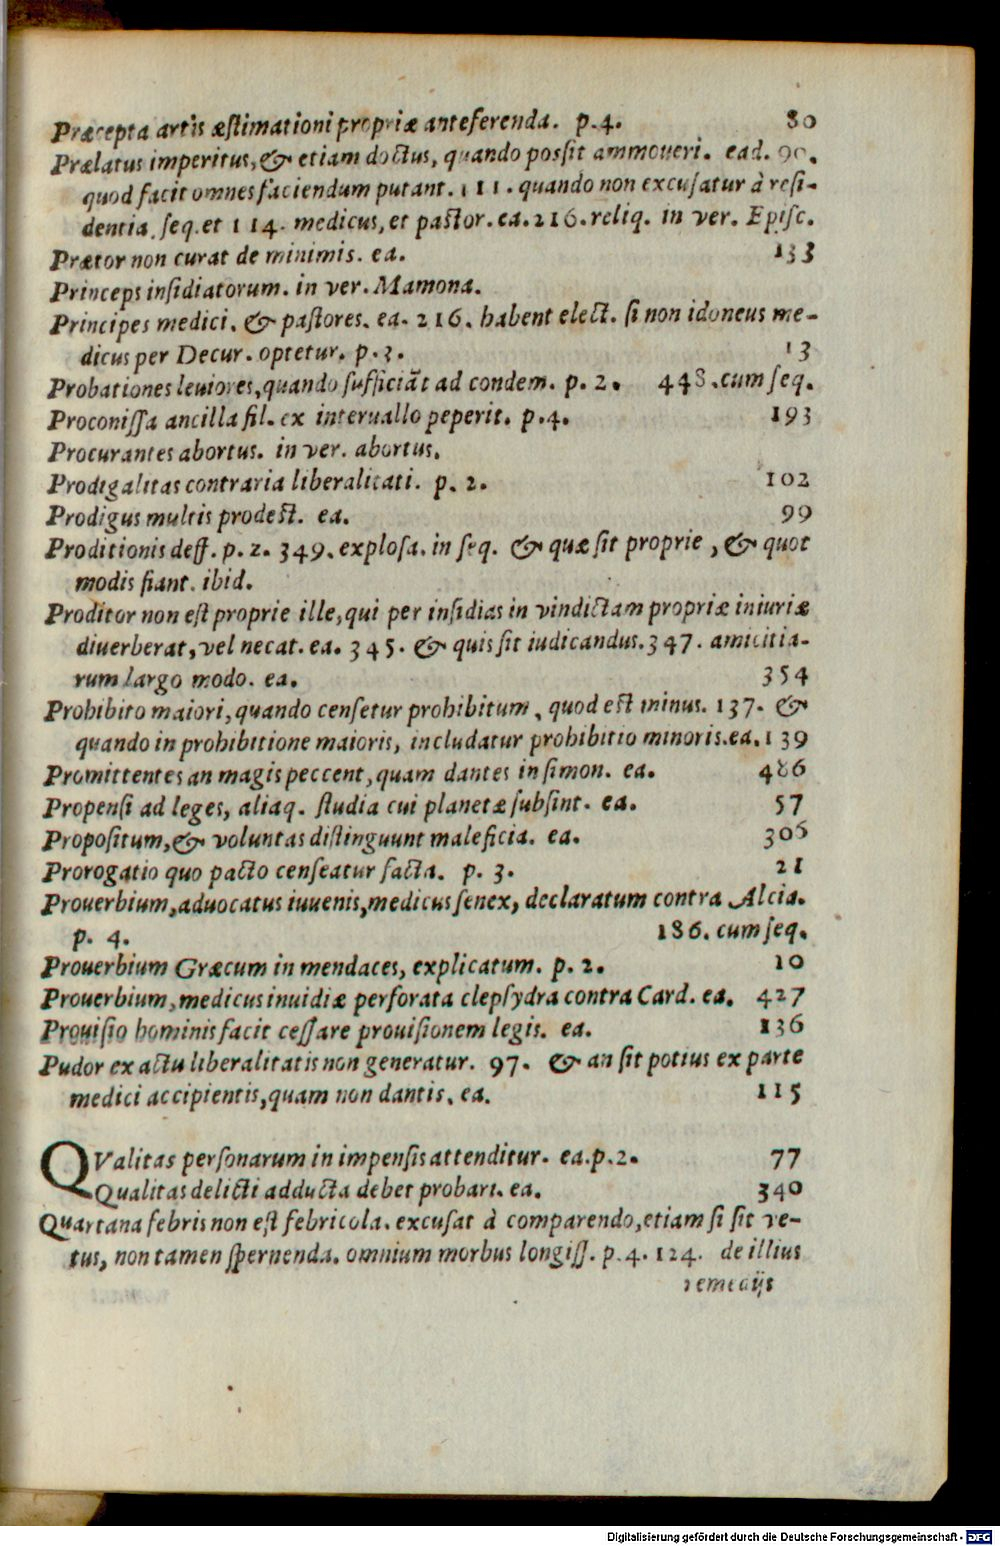 Præcepta artis æstimationi propriæ anteferenda. p.4. 80
Prælatus imperitus,& etiam doctus, quando possit ammoueri. ead. 90.
quod facit omnes faciendum putant. 111. quando non excusatur à resi-
dentia. seq. et 114. medicus, et pastor. ea. 216. reliq. in ver. Episc.
Prætor non curat de minimis. ea. 133
Princeps insidiatorum. in ver. Mamona.
Principes medici, & pastores. ea. 216. habent elect. si non idoneus me-
dicus per Decur. optetur. p.3. 13
Probationes leuiores,quando sufficiāt ad condem. p.2. 448.cum seq.
Proconissa ancilla fil. ex interuallo peperit. p.4. 193
Procurantes abortus. in ver. abortus.
Prodigalitas contraria liberalitati. p. 2. 102
Prodigus multis prodest. ea. 99
Proditionis deff. p. 2. 349. explosa. in seq. & quæ sit proprie, & quot
modis fiant. ibid.
Proditor non est proprie ille,qui per insidias in vindictam propriæ iniuriæ
diuerberat,vel necat. ea. 345. & quis sit iudicandus.347. amicitia-
rum largo modo. ea. 354
Prohibito maiori,quando censetur prohibitum, quod est minus. 137. &
quando in prohibitione maioris, includatur prohibitio minoris.ea.139
Promittentes an magis peccent,quam dantes in simon. ea. 486
Propensi ad leges, aliaq. studia cui planetæ subsint. ea. 57
Propositum,& voluntas distinguunt maleficia. ea. 306
Prorogatio quo pacto censeatur facta. p. 3. 21
Prouerbium,aduocatus iuuenis,medicus senex, declaratum contra Alcia.
p. 4. 186. cum seq.
Prouerbium Græcum in mendaces, explicatum. p. 2. 10
Prouerbium,medicus inuidiæ perforata clepsydra contra Card. ea. 427
Prouisio hominis facit cessare prouisionem legis. ea. 136
Pudor ex actu liberalitatis non generatur. 97. & an sit potius ex parte
medici accipientis,quam non dantis. ea. 115
QValitas personarum in impensis attenditur. ea.p.2. 77
Qualitas delicti adducta debet probari. ea. 340
Quartana febris non est febricola. excusat à comparendo,etiam si sit ve-
tus, non tamen spernenda. omnium morbus longiss. p.4. 124. de illius
remedijs
Digitalisierung gefördert durch die Deutsche Forschungsgemeinschaft - DFG